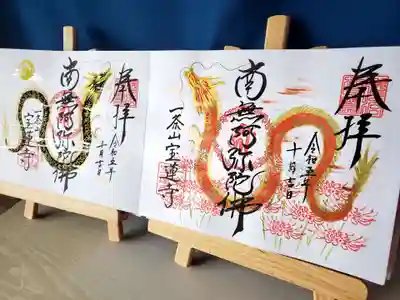 奉拝
令和五年
十月吉日
南無阿弥陀佛
一茶山宝蓮寺
奉拝
令和五年
十月吉日
南無阿弥陀佛
宝蓮寺